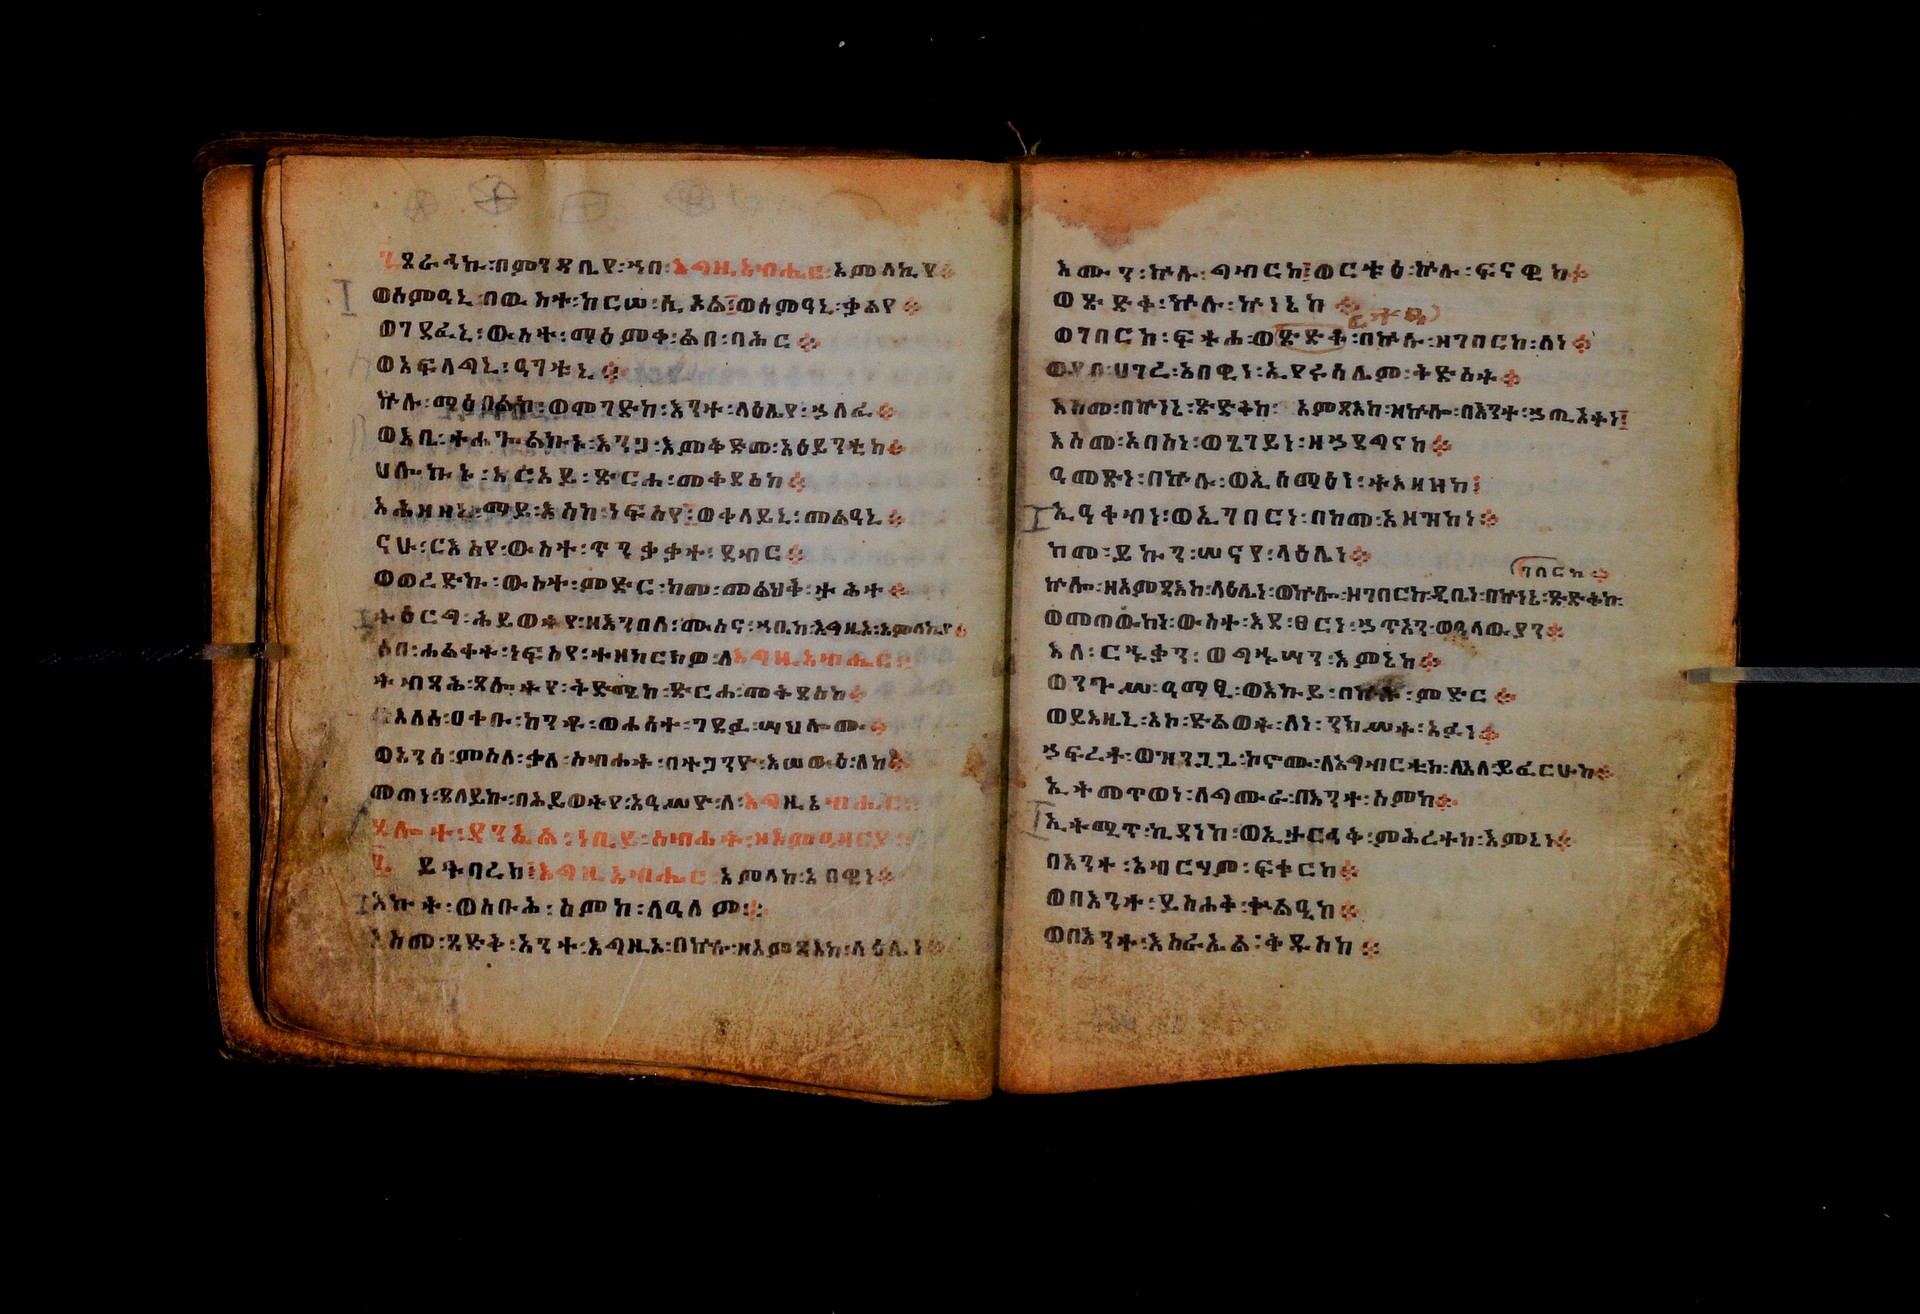 ፯ጸራኅኩ፡በምንዳቤየ፡ኀበ፡እግዚአብሔር፡አምላኪየ፨
ወሰምዓኒ፡በውእተ፡ከርሠ፡ሲኦል፤ወሰምዓኒ፡ቃልየ፨
ወገደፈኒ፡ውስተ፡ማዕምቀ፡ልበ፡ባሕር፨
ወአፍላግኒ፡ዓገቱኒ፨
ኵሉ፡ማዕበልከ፡ወሞገድከ፡እንተ፡ላዕሌየ፡ኀለፈ፨
ወእቤ፡ተሐጐልኩኑ፡እንጋ፡እምቅድመ፡አዕይንቲከ፨
ህሉኩኑ፡እርአይ፡ጽርሐ፡መቀደስከ፨
አሕዘዘኒ፡ማይ፡እስከ፡ነፍስየ፤ወቀላይኒ፡መልዓኒ፨
ናሁ፡ርእስየ፡ውስተ፡ጥንቃቃተ፡ደብር፨
ወወረድኩ፡ውስተ፡ምድር፡ከመ፡መልህቅ፡ታሕተ፨
ትዕርግ፡ሕይወትየ፡ዘእንበለ፡ሙስና፡ኀቤከ፡እግዚኦ፡አምላኪየ፨
ሶበ፡ሐልቀት፡ነፍስየ፡ተዘከርክዎ፡ለእግዚአብሔር፨
ትብጻሕ፡ጸሎትየ፡ቅድሜከ፡ጽርሐ፡መቅደስከ፨
እለሰ፡ዐቀቡ፡ከንቱ፡ወሐሰተ፡ገደፉ፡ሣህሎሙ፨
ወአንሰ፡ምስለ፡ቃለ፡ስብሐት፡በተጋንዮ፡እሠውዕ፡ለከ፨
መጠነ፡ጸለይኩ፡በሕይወትየ፡እዓሥዮ፡ለእግዚአብሔር፨
ጸሎተ፡ዳንኤል፡ነቢይ፡ስብሐት
ይትባረክ፤እግዚአብሔር፡አምላከ፡አበዊነ፨
እኩት፡ወስቡሕ፡ስምከ፡ለዓለም፨
እስመ፡ጻድቅ፡አንተ፡እግዚኦ፡በኵሉ፡ዘአምጻእከ፡ላዕሌነ፨
እሙን፡ኵሉ፡ግብርከ፤ወርቱዕ፡ኵሉ፡ፍናዊከ፨
ወጽድቅ፡ኵሉ፡ኵነኔከ፨
ወገበርከ፡ፍትሐ፡ወጽድቅ፡በኵሉ፡ዘገበርከ፡ለነ፨
ወዲበ፡ሀገረ፡አበዊነ፡ኢየሩሳሌም፡ቅድስት፨
እስመ፡በኵነኔ፡ጽድቅከ፡አምጻእከ፡ዘኵሎ፡በእንተ፡ኀጢአትነ፤
እስመ፡አበስነ፡ወጌገይነ፡ዘኀደግናከ፨
ዓመፅነ፡በኵሉ፡ወኢሰማዕነ፡ትእዛዝከ፤
ኢዓቀብነ፡ወኢገበርነ፡በከመ፡አዘዝከነ፨
ከመ፡ይኩን፡ሠናየ፡ላዕሌነ፨
ገበርከ፨
ኵሎ፡ዘአምጻእከ፡ላዕሌነ፡ወኵሎ፡ዘገበርከ፡ዲቤነ፡በኵነኔ፡ጽድቅከ፡
ወመጠውከነ፡ውስተ፡እደ፡ፀርነ፡ኃጥአን፡ወዓላውያን፨
እለ፡ርኁቃን፡ወግኁሣን፡እምኔከ፨
ወንጉሠ፡ዓማፂ፡ወእኩይ፡በኵሉ፡ምድር፨
ወይእዜኒ፡አከ፡ድልወት፡ለነ፡ንክሠት፡አፉነ፨
ኀፍረት፡ወዝንጓጔ፡ኮኖሙ፡ለአግብርቲከ፡ለእለ፡ይፈርሁከ፨
ኢትመጥወነ፡ለግሙራ፡በእንተ፡ስምከ፨
ኢትሚጥ፡ኪዳነከ፡ወኢታርኅቅ፡ምሕረተከ፡እምኔነ፨
በእንተ፡አብርሃም፡ፍቁርከ፨
ወበእንተ፡ይስሐቅ፡ቍልዔከ፨
ወበእንተ፡እስራኤል፡ቅዱስከ፨